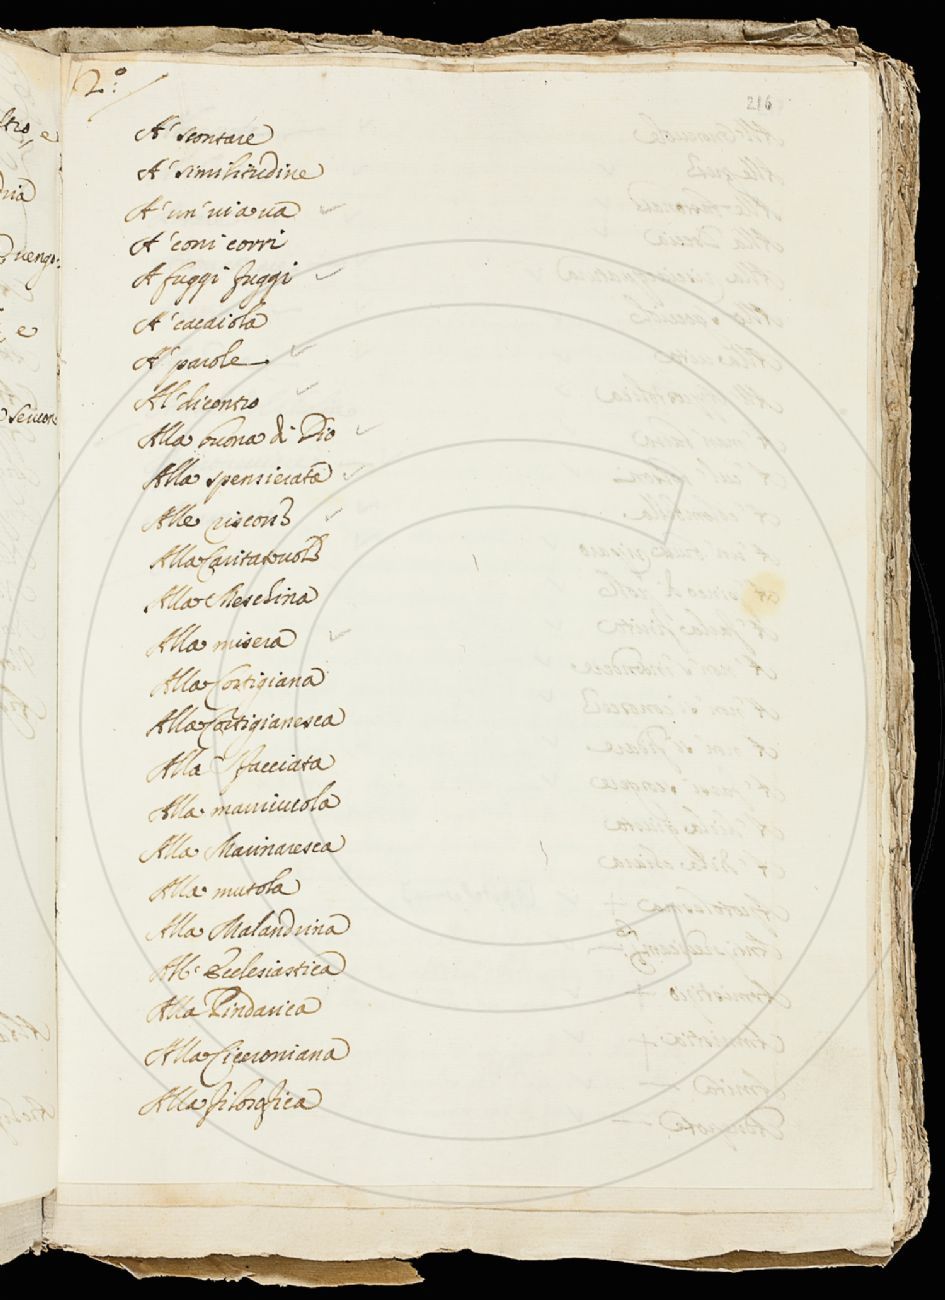 2.º
216
A' scontare
A' similitudine
A' un' viavà
A' corri corri
A fuggi fuggi
A' cacaiola
A' parole
Al' dicontro
Alla buona di Dio
Alla spensierata
Alle
Alla Caritatevole
Alla Meschina
Alla misera
Alla Cortigiana
Alla Cortigianesca
Alla Sfacciata
Alla
Alla Marinaresca
Alla mutola
Alla Malandrina
All' Ecclesiastica
Alla Pindarica
Alla Ciceroniana
Alla filosofica